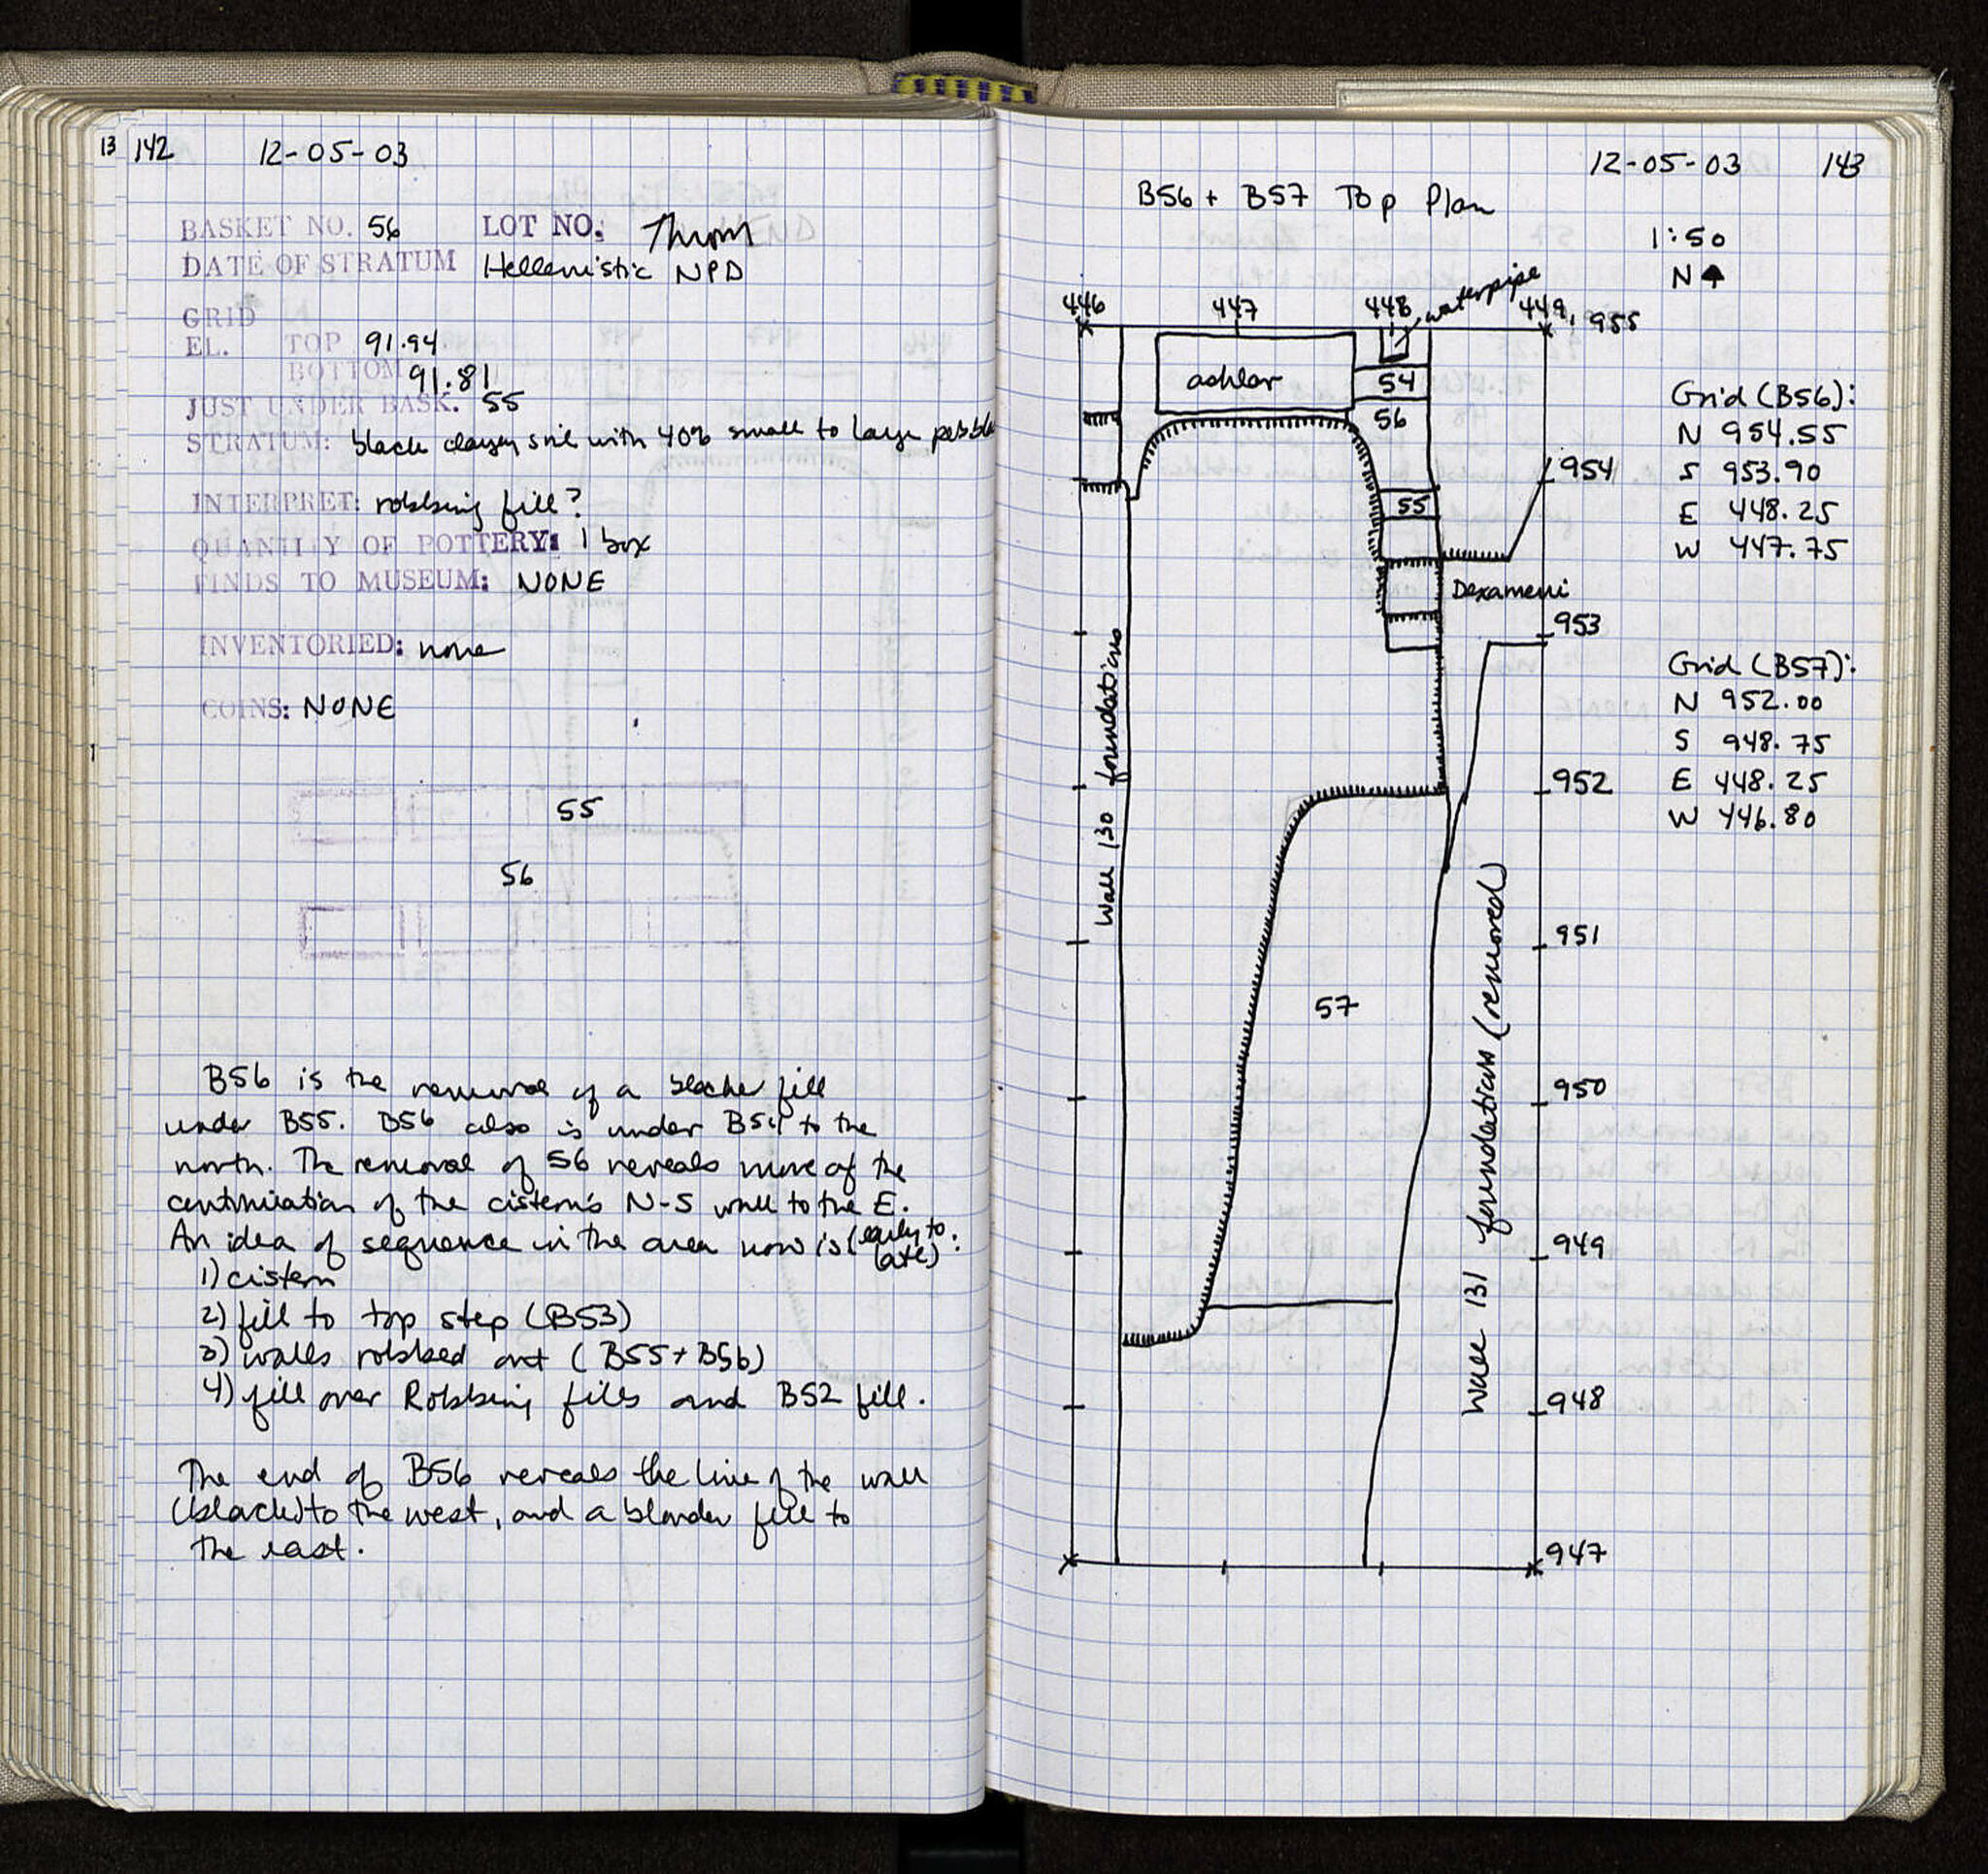 13 142 12-05-03
BASKET NO. 56 LOT NO: Thrown
DATE OF STRATUM Hellenistic NPD
GRID
EL. TOP 91.94
BOTTOM 91.81
JUST UNDER BASK. 55
STRATUM: black clayey soil with 40% small to large pebbles
INTERPRET: robbing fill?
QUANTITY OF POTTERY: 1 box
FINDS TO MUSEUM: NONE
INVENTORIED: none
COINS: NONE
55
56
B56 is the removal of a blacker fill
under B55. B56 also is under B54 to the
north. The removal of 56 reveals more of the
continuation of the cistern's N-S wall to the E.
An idea of sequence in the area now is (early to late):
1) cistern
2) fill to top step (B53)
3) walls robbed out (B55+B56)
4) fill over Robbing fills and B52 fill.
The end of B56 reveals the line of the wall
(black) to the west, and a blonder fill to
the east.
12-05-03 143
B56 + B57 Top Plan
1:50
N
waterpipe
446 447 448 449, 955
ashlar
54
56
954
55
Dexameni
953
Wall 130 foundations
952
951
57
950
Wall 131 foundations (removed)
949
948
947
Grid (B56):
N 954.55
S 953.90
E 448.25
W 447.75
Grid (B57):
N 952.00
S 948.75
E 448.25
W 446.80